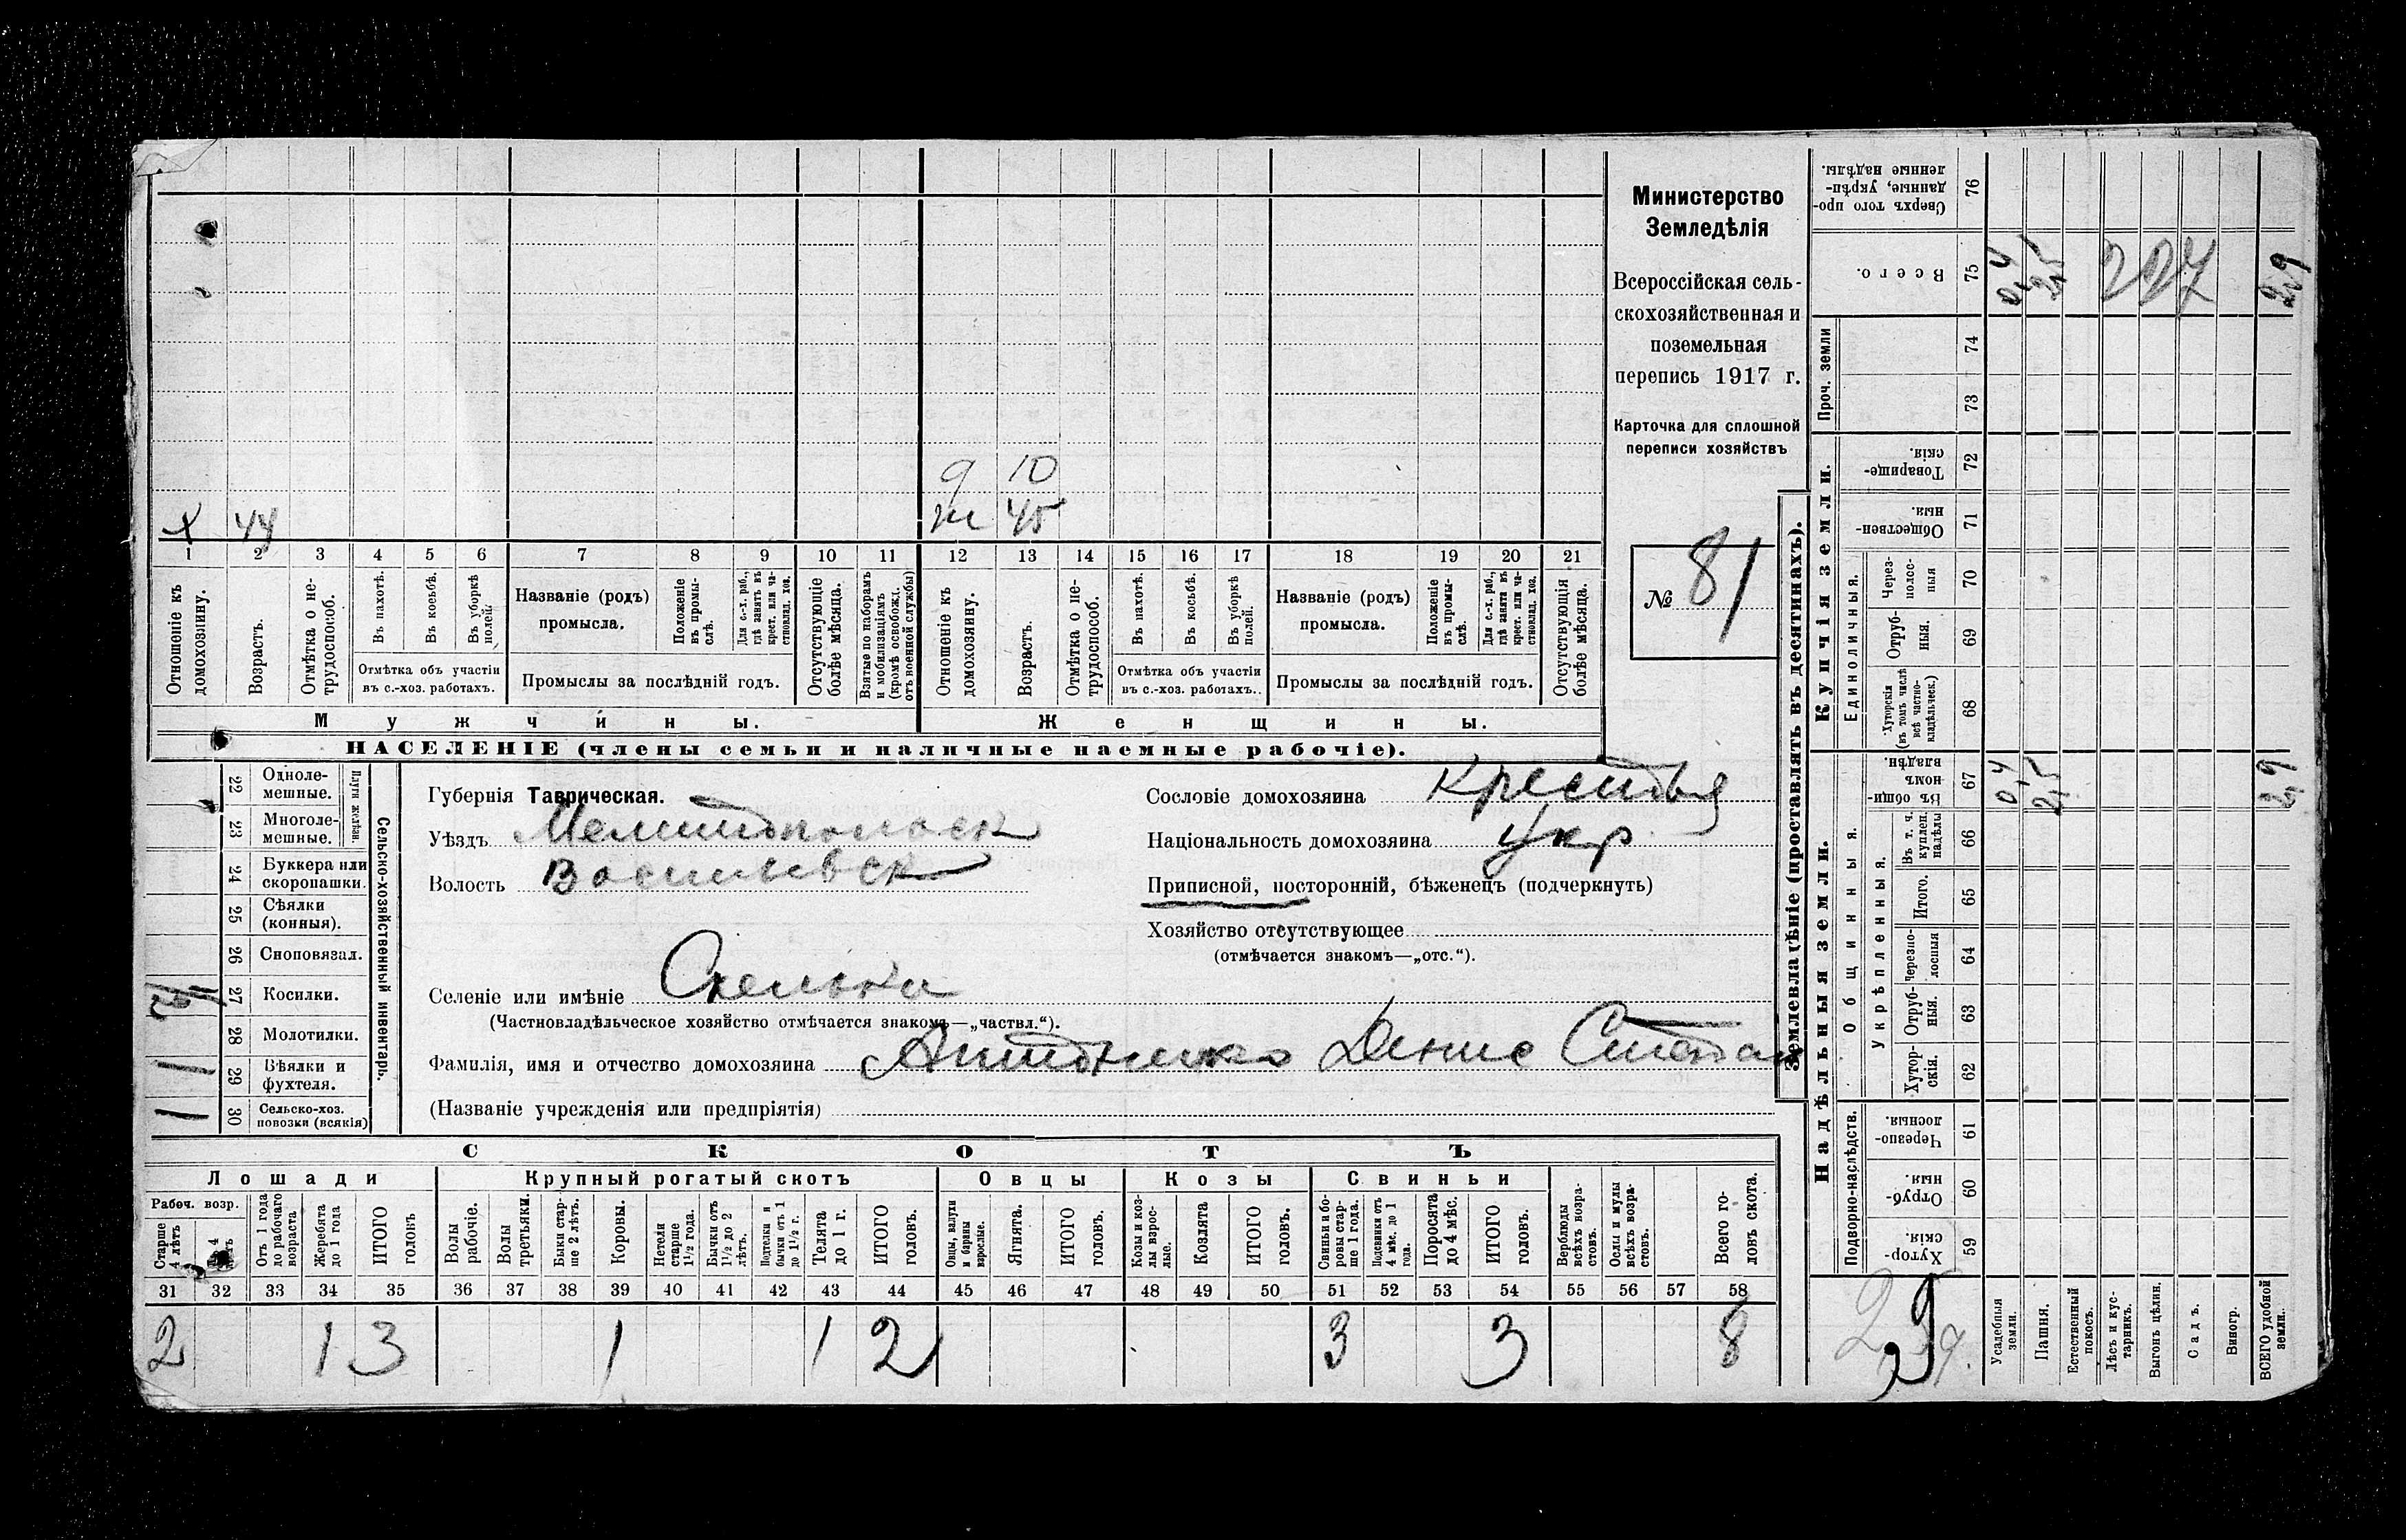 Министерство
Земледѣлія
Всероссійская сель-
скохозяйственная и
поземельная
перепись 1917 г.
Карточка для сплошной
переписи хозяйствъ
№ 81
9 10
ж 45
х 44
1 2 3 4 5 6 7 8 9 10 11 12 13 14 15 16 17 18 19 20 21
Отношеніе къ домохозяину.
Возрастъ.
Отмѣтка о не-трудоспособ.
Въ пахотѣ.
Въ косьбѣ.
Въ уборкѣ полей.
Отмѣтка объ участіи
въ с.-хоз. работахъ.
Названіе (родъ)
промысла.
Положеніе въ промы-слѣ.
Для с.-х. раб., гдѣ занятъ въ крест. или ча-стновлад. хоз.
Промыслы за послѣдній годъ.
Отсутствующіе болѣе мѣсяца.
Взятые по наборамъ и мобилизаціямъ (кромѣ освобожд. отъ военной службы)
Отношеніе къ домохозяину.
Возрастъ.
Отмѣтка о не-трудоспособ.
Въ пахотѣ.
Въ косьбѣ.
Въ уборкѣ полей.
Отмѣтка объ участіи
въ с.-хоз. работахъ.
Названіе (родъ)
промысла.
Положеніе въ промы-слѣ.
Для с.-х. раб., гдѣ занята въ крест. или ча-стновлад. хоз.
Промыслы за послѣдній годъ.
Отсутствующія болѣе мѣсяца.
Мужчины.
Женщины.
НАСЕЛЕНІЕ (члены семьи и наличные наемные рабочіе).
Сельско-хозяйственный инвентарь.
Плуги желѣзн.
22 Одноле-мешные.
23 Многоле-мешные.
24 Буккера или скоропашки.
25 Сѣялки (конныя).
26 Сноповязал.
27 Косилки.
28 Молотилки.
29 Вѣялки и фухтеля. 1
30 Сельско-хоз. повозки (всякія) 1
Губернія Таврическая.
Уѣздъ Мелитопольск
Волость Васильевск
Селеніе или имѣніе Скелька
(Частновладѣльческое хозяйство отмѣчается знакомъ—„частвл.“).
Фамилія, имя и отчество домохозяина Антоненко Денис Степан
(Названіе учрежденія или предпріятія)
Сословіе домохозяина Крестья
Національность домохозяина Укр
Приписной, посторонній, бѣженецъ (подчеркнуть)
Хозяйство отсутствующее
(отмѣчается знакомъ—„отс.“).
СКОТЪ
Лошади
Крупный рогатый скотъ
Овцы
Козы
Свиньи
Рабоч. возр.
Старше 4 лѣтъ
До 4 лѣтъ
Отъ 1 года до рабочаго возраста
Жеребята до 1 года
ИТОГО головъ
Волы рабочіе.
Волы третьяки.
Быки стар-ше 2 лѣтъ.
Коровы.
Нетели старше 1½ года.
Бычки отъ 1½ до 2 лѣтъ.
Подтелки и бычки отъ 1 до 1½ г.
Телята до 1 г.
ИТОГО головъ.
Овцы, валухи и бараны взрослые.
Ягнята.
ИТОГО головъ.
Козы и коз-лы взрос-лые.
Козлята
ИТОГО головъ.
Свиньи и бо-ровы стар-ше 1 года.
Подсвинки отъ 4 мѣс. до 1 года.
Поросята до 4 мѣс.
ИТОГО головъ.
Верблюды всѣхъ возра-стовъ.
Ослы и мулы всѣхъ возра-стовъ.
Всего го-ловъ скота.
31 32 33 34 35 36 37 38 39 40 41 42 43 44 45 46 47 48 49 50 51 52 53 54 55 56 57 58
2 1 3 1 1 2 3 3 8
Землевладѣніе (проставлять въ десятинахъ).
Надѣльныя земли.
Купчія земли.
Проч. земли
Подворно-наслѣдств.
Общинныя.
Укрѣпленныя.
Единоличныя.
59 Хутор-скія.
60 Отруб-ныя.
61 Черезпо-лосныя.
62 Хутор-скія.
63 Отруб-ныя.
64 Черезпо-лосныя
65 Итого.
66 Въ т. ч. куплен. надѣлы
67 Въ общи-номъ владѣн. 0,4 2,5 2,9
68 Хуторскія (въ томъ числѣ всѣ частно-владѣльческ.)
69 Отруб-ныя.
70 Через-полос-ныя
71 Обществен-ныя.
72 Товарище-скія.
73
74
75 Всего. 0,4 2,5 227 2,9
76 Сверхъ того про-данные, укрѣп-ленные надѣлы.
Усадебныя земли.
Пашня.
Естественный покосъ.
Лѣсъ и кус-тарникъ.
Выгонъ цѣлин.
Садъ.
Виногр.
ВСЕГО удобной земли.